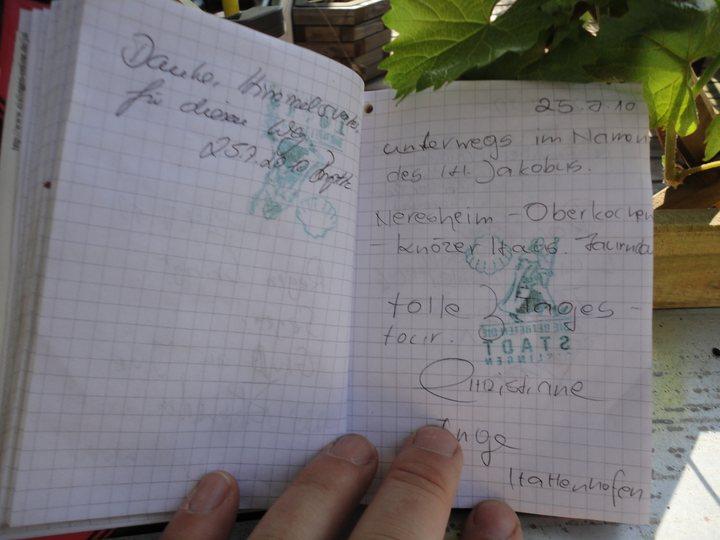 Danke, Himmelsvater,
für diesen Weg
25.7.2010
25.7.10
unterwegs im Namen
des Hl. Jakobus.
Neresheim - Oberkochen
- Haus.
tolle 3 Tages-
tour.
Christiane
Inge
Hattenhofen
STADT